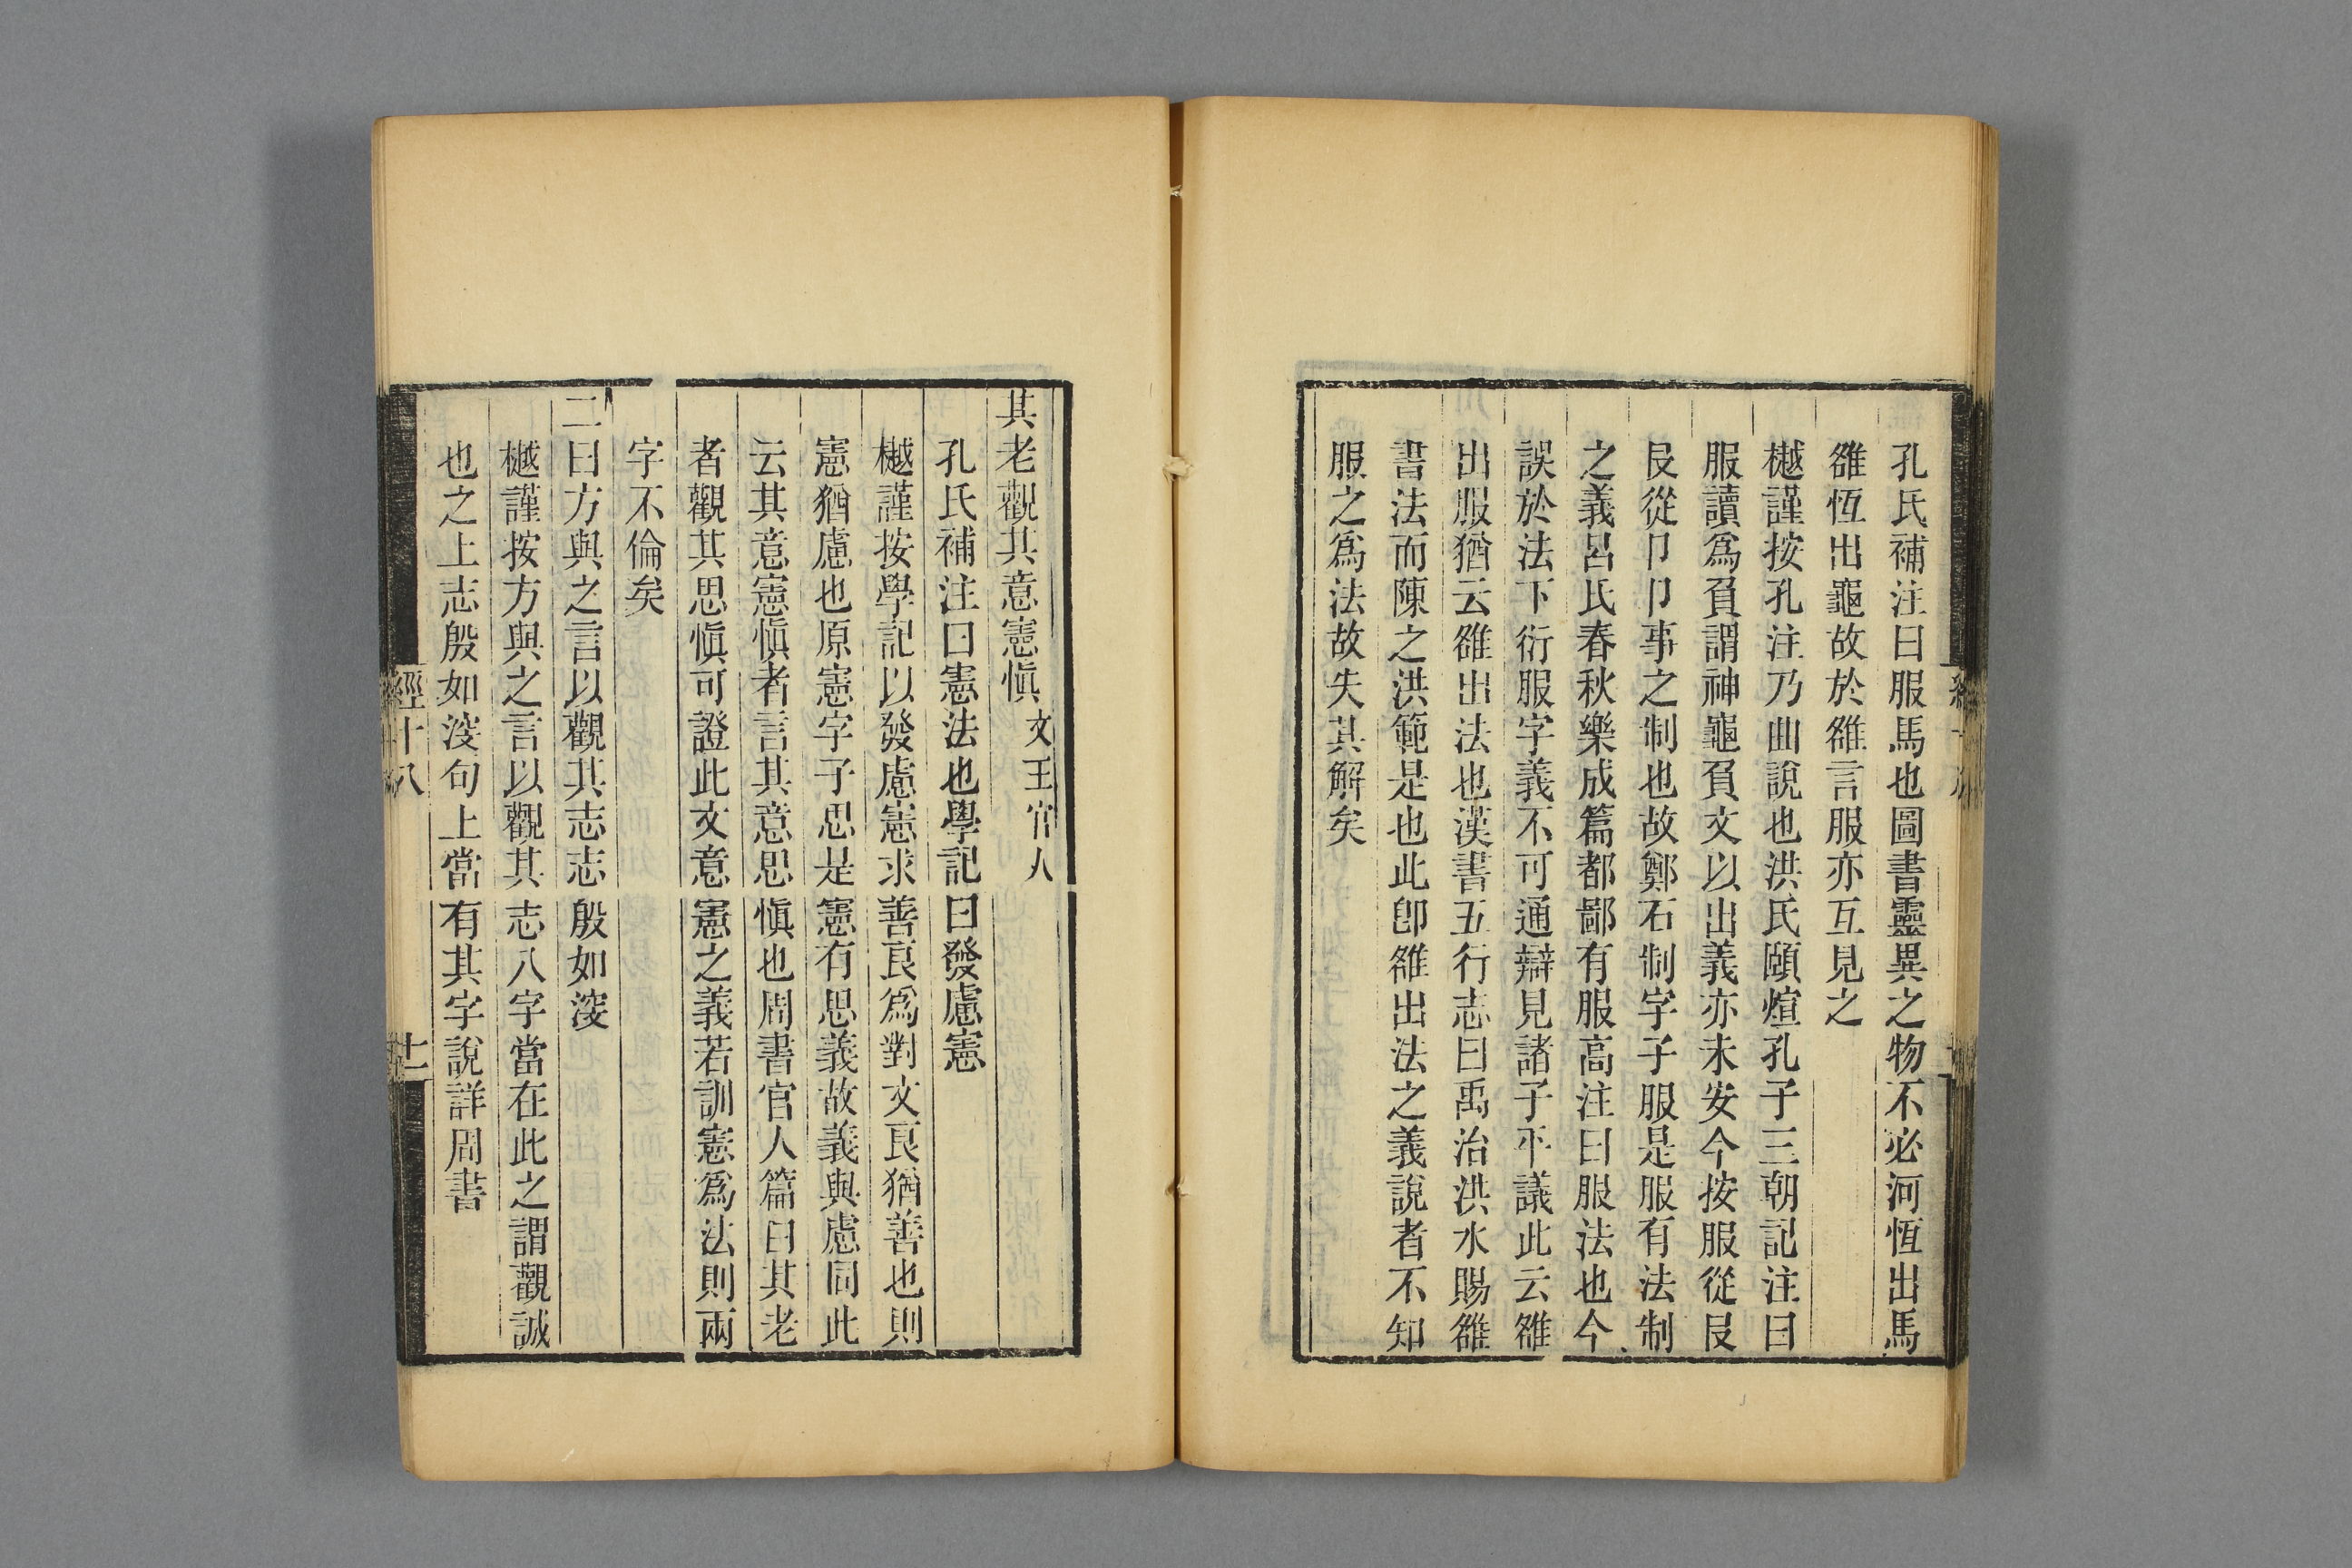 孔氏補注曰服馬也圖書靈異之物不必河恆出馬
雒恆出龜故於雒言服亦互見之
樾謹按孔注乃曲說也洪氏頤煊孔子三朝記注曰
服讀爲負謂神龜負文以出義亦未安今按服從𠬝
𠬝從卩卩事之制也故鄭石制字子服是服有法制
之義呂氏春秋樂成篇都鄙有服高注曰服法也今
誤於法下衍服字義不可通辯見諸子平議此云雒
出服猶云雒出法也漢書五行志曰禹治洪水賜雒
書法而陳之洪範是也此卽雒出法之義說者不知
服之爲法故失其解矣
其老觀其意憲愼 文王官人
孔氏補注曰憲法也學記曰發慮憲
樾謹按學記以發慮憲求善良爲對文良猶善也則
憲猶慮也原憲字子思是憲有思義故義與慮同此
云其意憲愼者言其意思愼也周書官人篇曰其老
者觀其思愼可證此文意憲之義若訓憲爲法則兩
字不倫矣
二曰方與之言以觀其志志殷如㴱
樾謹按方與之言以觀其志八字當在此之謂觀誠
也之上志殷如㴱句上當有其字說詳周書
經十八
十二